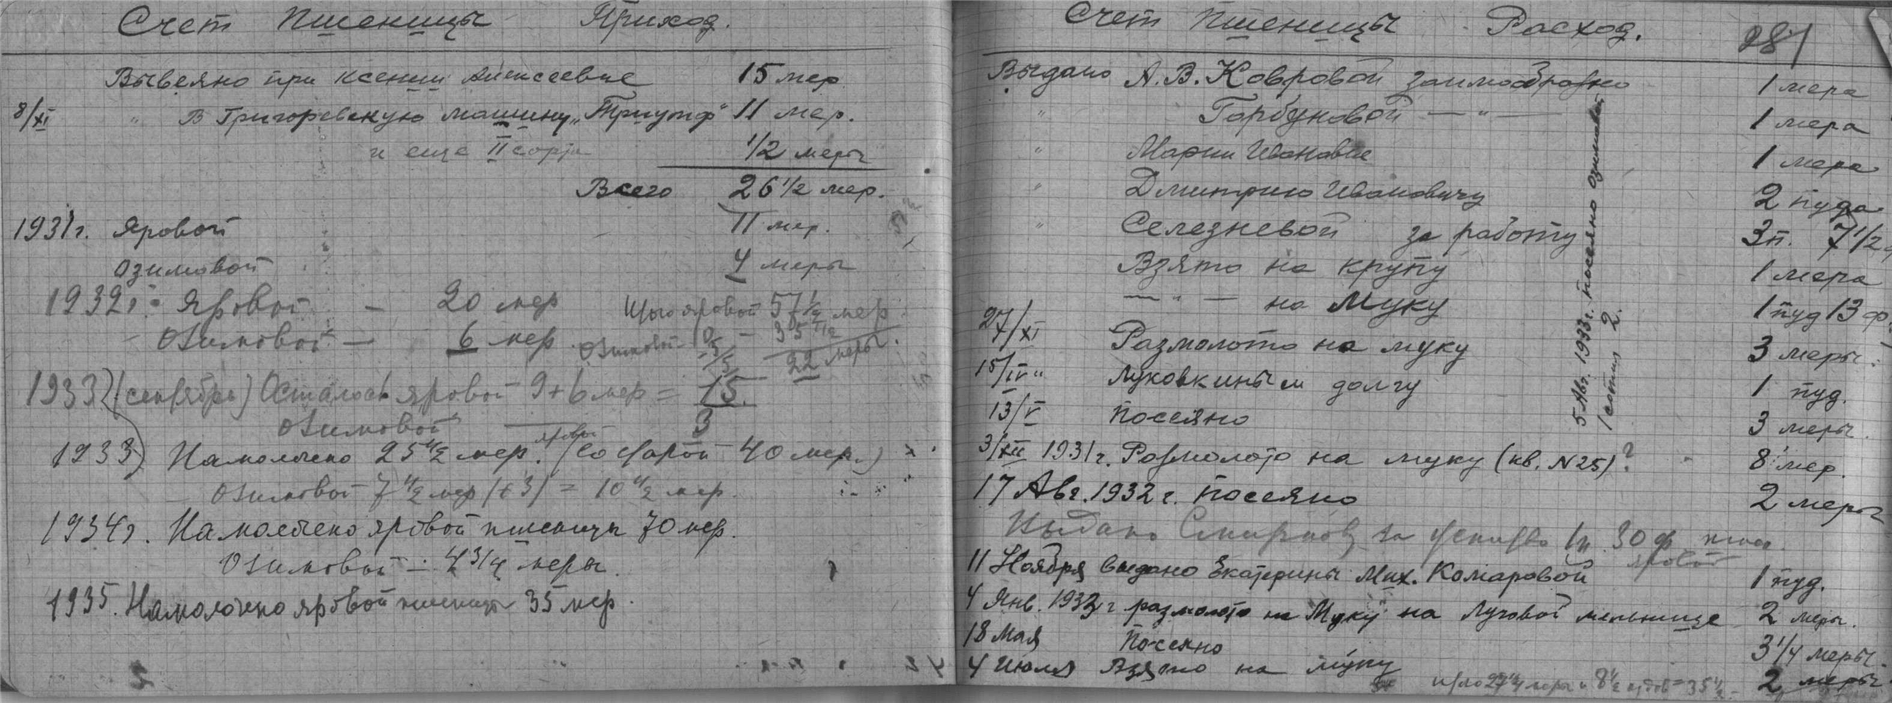 Счет Пшеницы Приход.
Вывеяно при Ксении Алексеевне 15 мер
8/XI " В Григорьевскую машину „Триумф" 11 мер.
и еще II сорта 1/2 меры
Всего 26 1/2 мер.
1931 г. Яровой 11 мер.
Озимовой 4 меры
1932 г. Яровой — 20 мер
Озимовой — 6 мер.
яровой 57 1/2 мер
Озимовой 10 — 35 1/2
22 меры.
1933 (сентябрь) Осталось яровой 9+6 мер = 15
Озимовой 3
1933) Намолочено 25 1/2 мер. яровой (со старой 40 мер.)
Озимовой 7 1/2 мер (+3) = 10 1/2 мер.
1934 г. Намолочено яровой пшеницы 70 мер.
Озимовой — 4 3/4 меры.
1935. Намолочено яровой пшеницы 35 мер.
Счет Пшеницы Расход.
281
Выдано А. В. Ковровой заимообразно 1 мера
" Горбуновой — " — 1 мера
" Марии Ивановне 1 мера
" Дмитрию Ивановичу 2 пуда
" Селезневой за работу 3 п. 7 1/2
Взято на крупу 1 мера
— " — на муку 1 пуд 13 ф.
27/XI Размолото на муку 3 меры
15/IV " Луковкиным долгу 1 пуд.
13/V Посеяно 3 меры.
3/XII 1931 г. Размолото на муку (кв. N 25)? 8 мер
17 Авг. 1932 г. посеяно 2 меры
Выдано Смирнову за 1 п. 30 ф
яровой
11 Ноября выдано Екатерины Мих. Комаровой 1 пуд.
4 Янв. 1933 г размолото на Муку на Луговой мельнице 2 меры.
18 мая Посеяно 3 1/4 меры.
4 Июля Взято на муку 2 меры
27 1/4 меры и 8 1/2 = 35 1/2
5 Авг. 1933 г. посеяно озимовой
1 сотня 2.